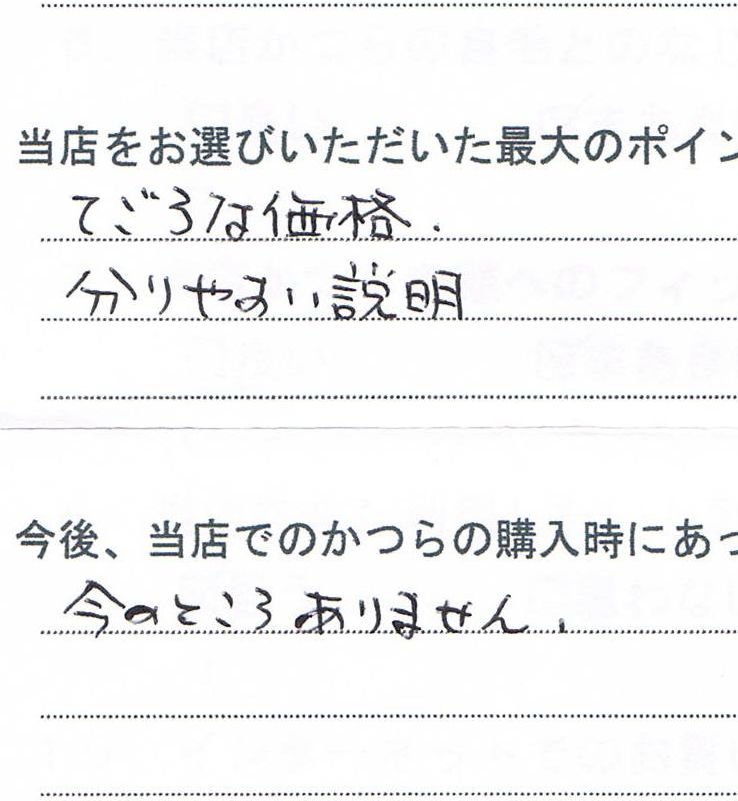 当店をお選びいただいた最大のポイン
てごろな価格.
分りやすい説明
今後、当店でのかつらの購入時にあっ
今のところありません.